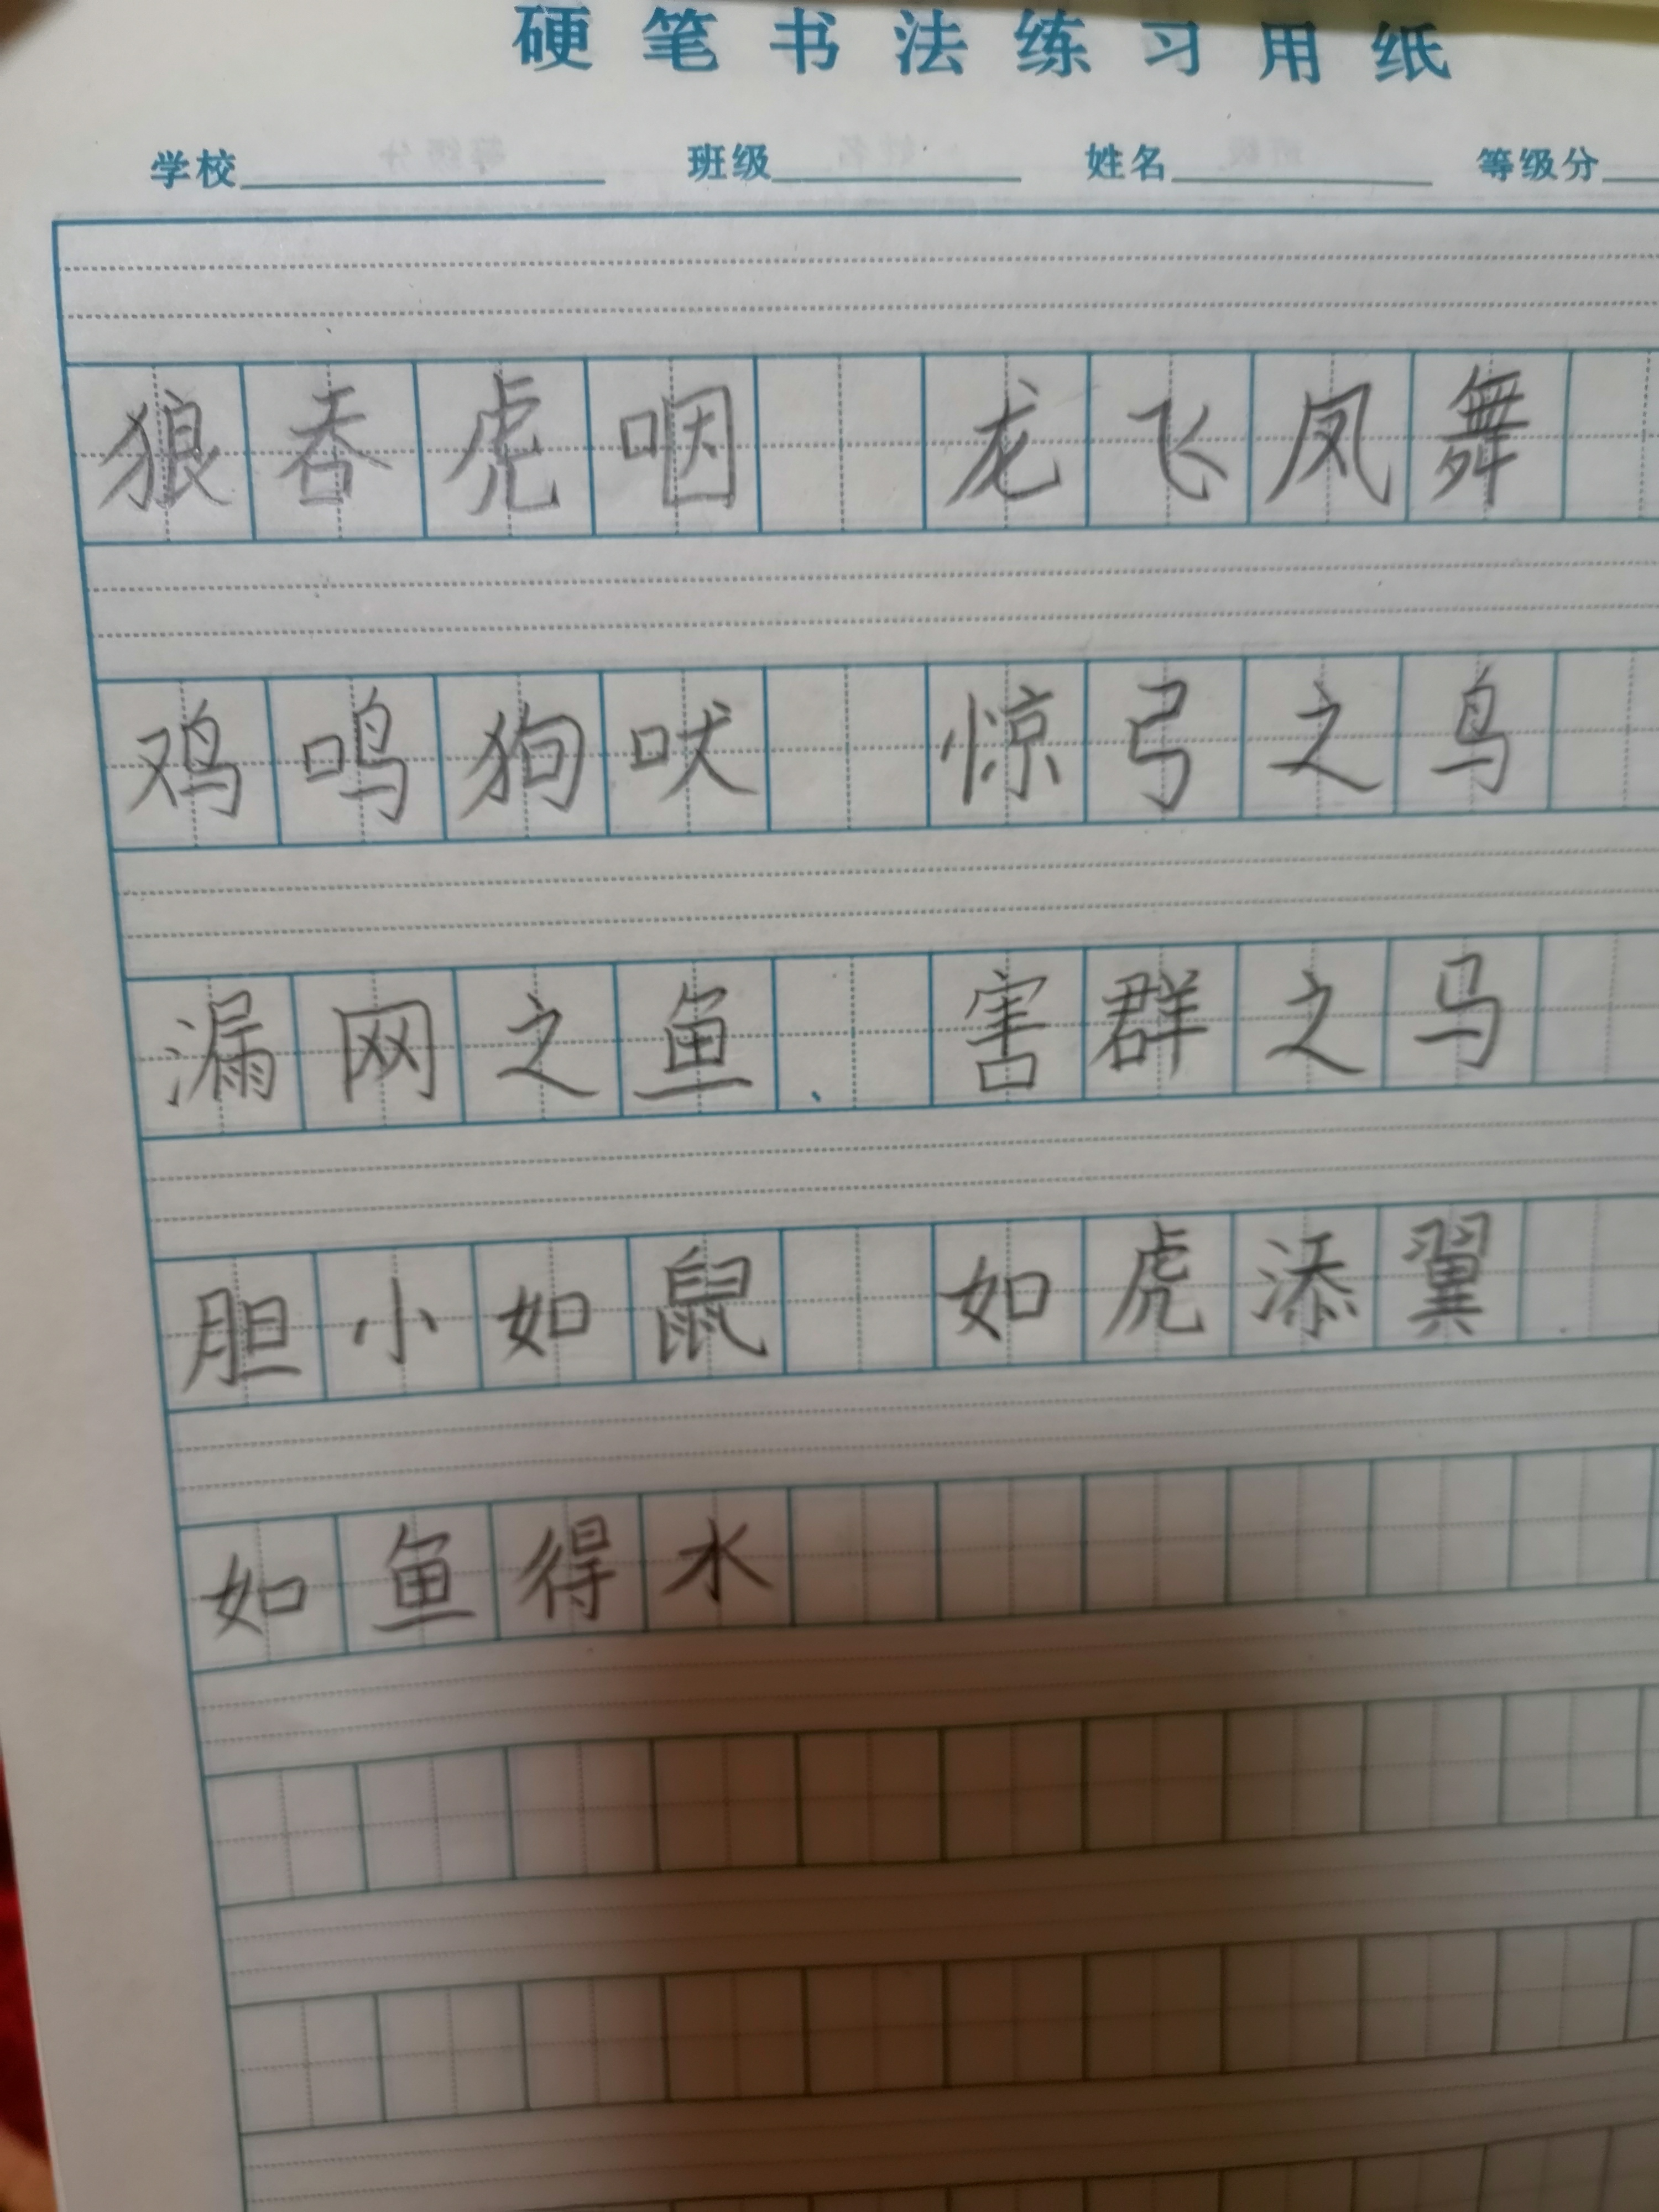 硬笔书法练习用纸
学校 班级 姓名 等级分
狼吞虎咽 龙飞凤舞
鸡鸣狗吠 惊弓之鸟
漏网之鱼 害群之马
胆小如鼠 如虎添翼
如鱼得水